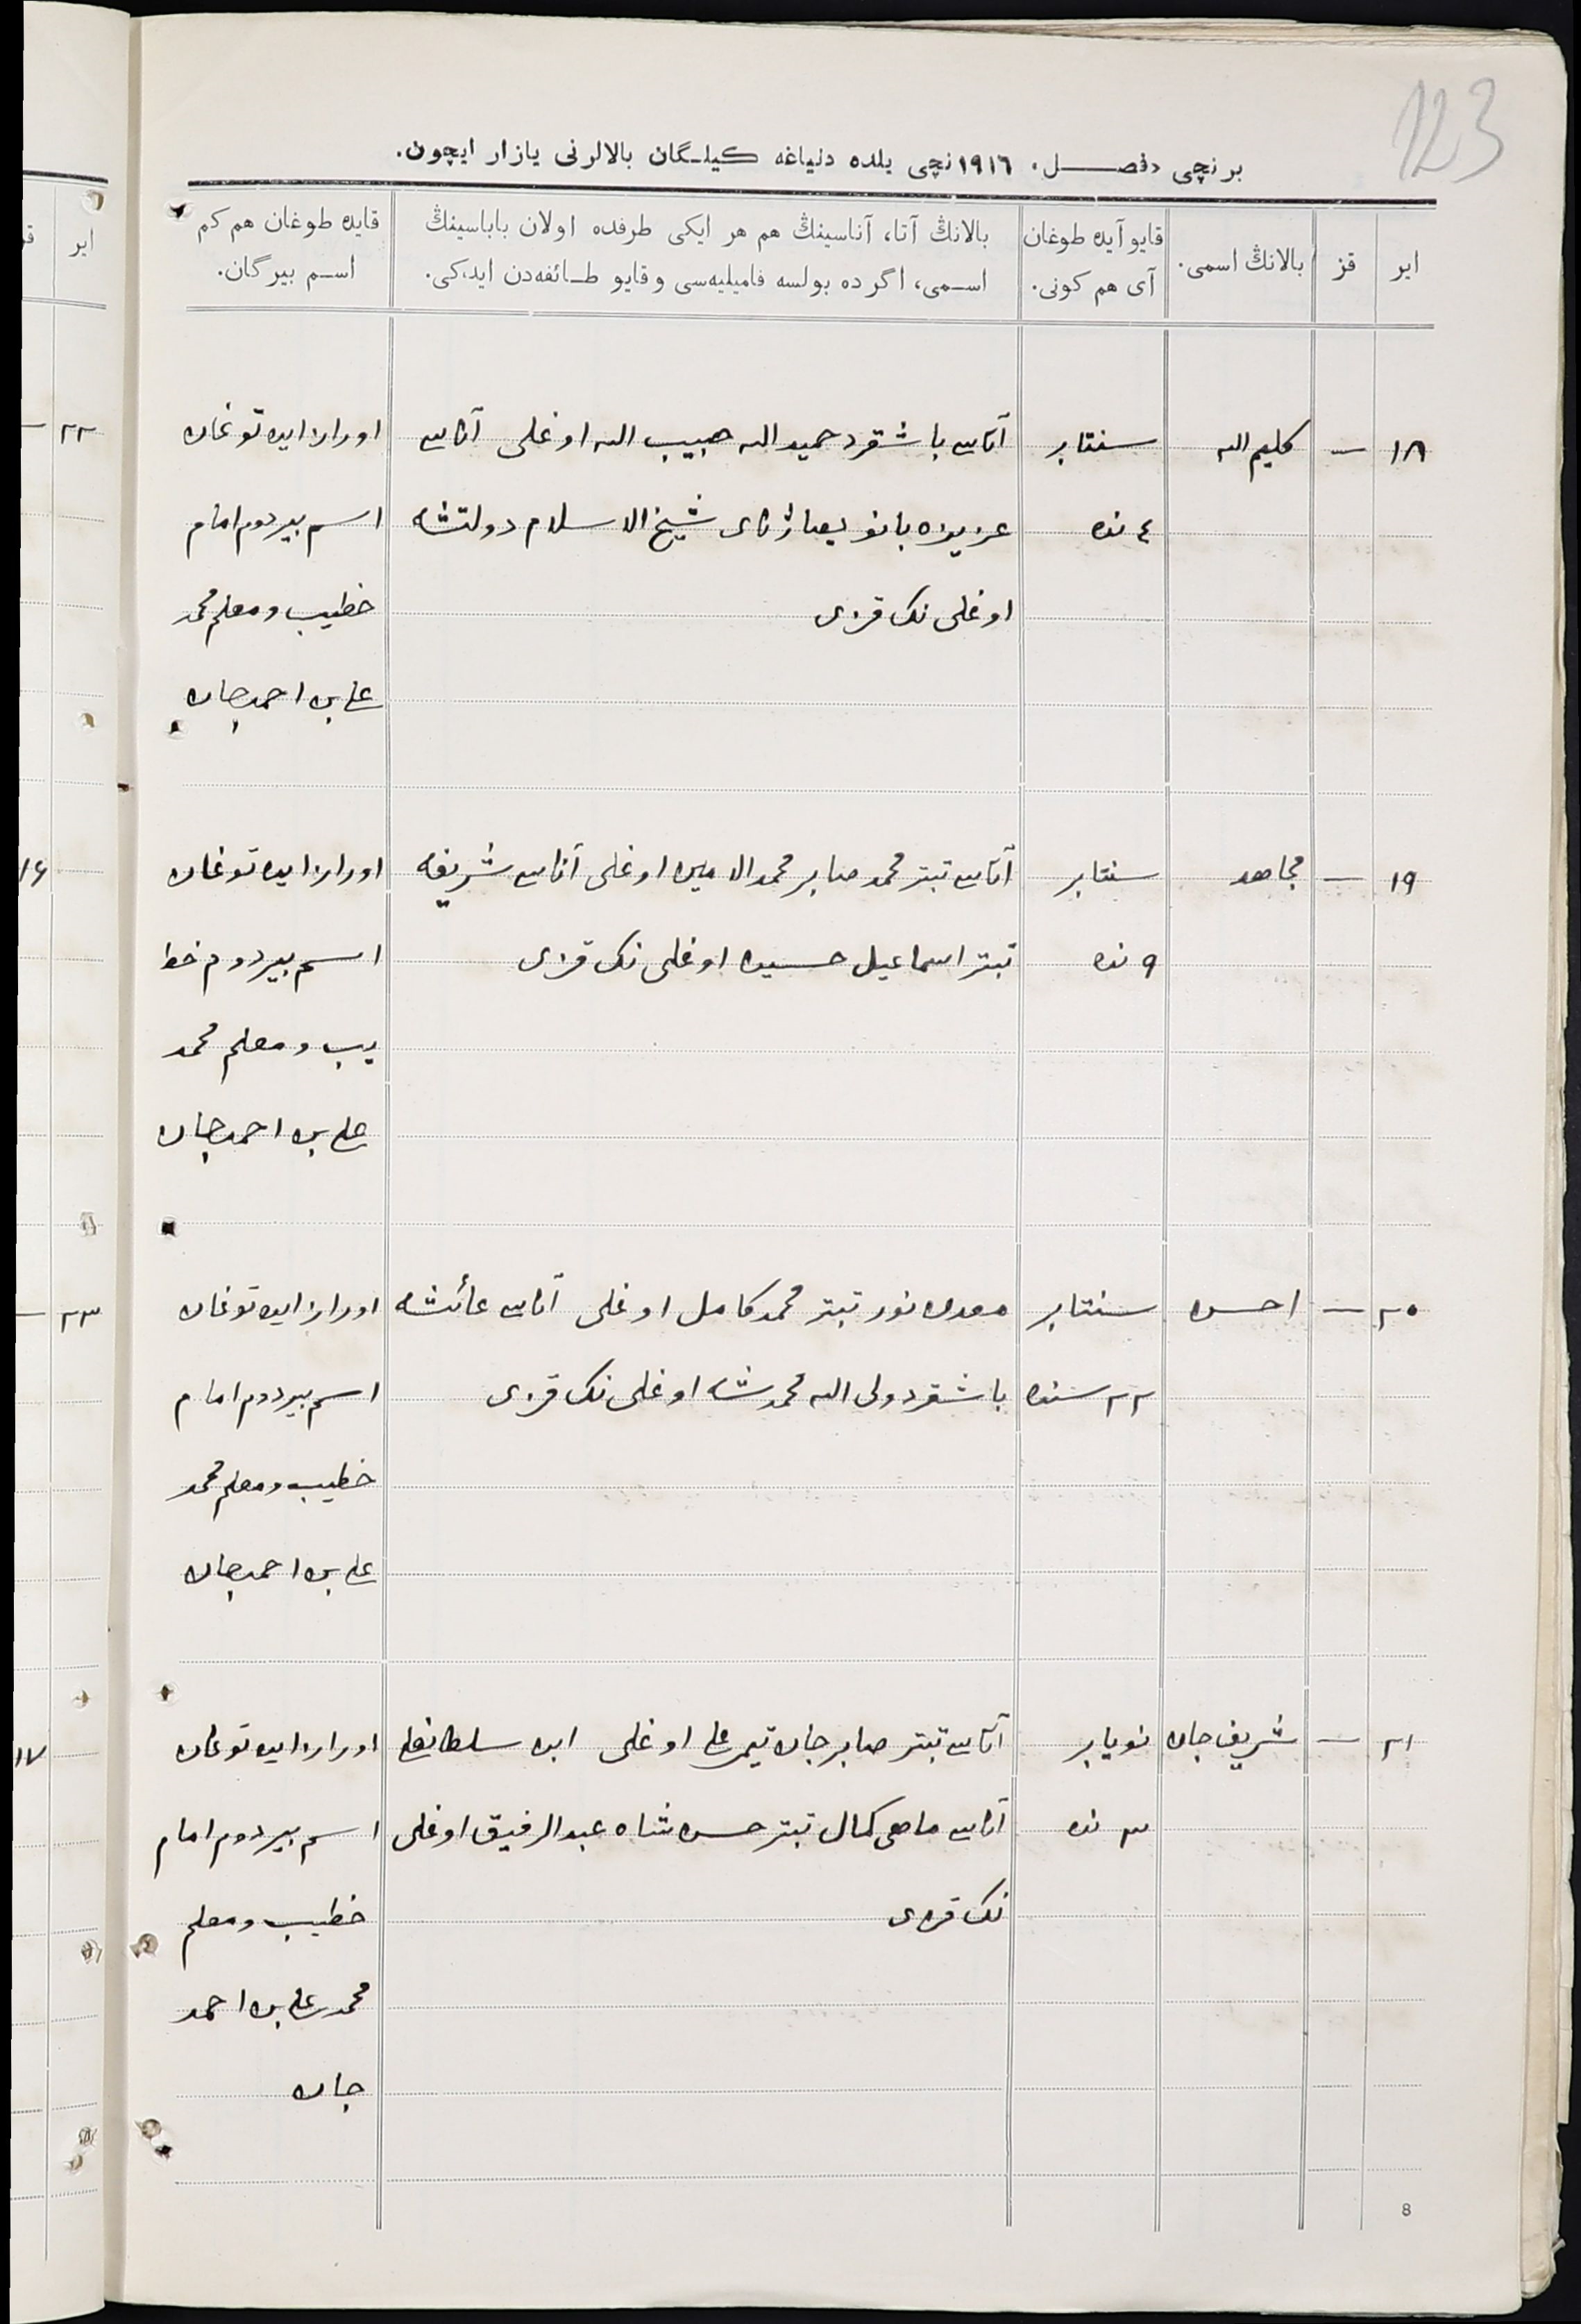 123
برنچی «فصـــل» ١٩١٦نچی یلده دنیاغه کیلـگان بالالرنی یازار ایچون.
ایر
قز
بالانڭ اسمی.
قایو آیده طوغان
آی هم کونی.
بالانڭ آتا، آناسینڭ هم هر ایکی طرفده اولان باباسینڭ
اسـمی، اگر ده بولسه فامیلیه‌سی و قایو طـائفه‌دن ایدکی.
قایده طوغان هم کم
اسـم بیرگان.
١٨ — کلیم الله
سنتابر
٤ نده
آتاسی باشقرد حمید الله حبیب الله اوغلی آناسی
عزیزه بانو شیخ الاسلام دولتشاه
اوغلی نک قزی
اوران ایده توغان
اسم بیردوم امام
خطیب و معلم محمد
علی بن احمدجان
١٩ — مجاهد
سنتابر
٩ نده
آتاسی تبتر محمد صابر محمد الامین اوغلی آناسی شریفه
تبتر اسماعیل حسین اوغلی نک قزی
اوران ایده توغان
اسم بیردوم خط
یب و معلم محمد
علی بن احمدجان
٢٠ — احسن
سنتابر
٢٢ سنده
معدن نور تبتر محمد کامل اوغلی آناسی عائشه
باشقرد ولی الله محمد شاه اوغلی نک قزی
اوران ایده توغان
اسم بیردوم امام
خطیب و معلم محمد
علی بن احمدجان
٢١ — شریف جان
نویابر
٣ نده
آتاسی تبتر صابر جان تیمرعلی اوغلی ابن سلطانعلی
آناسی ماهی کمال تبتر حسن شاه عبد الرفیق اوغلی
نک قزی
اوران ایده توغان
اسم بیردوم امام
خطیب و معلم
محمد علی بن احمد
جان
8
ایر
٢٢ —
١٦
٢٣ —
١٧